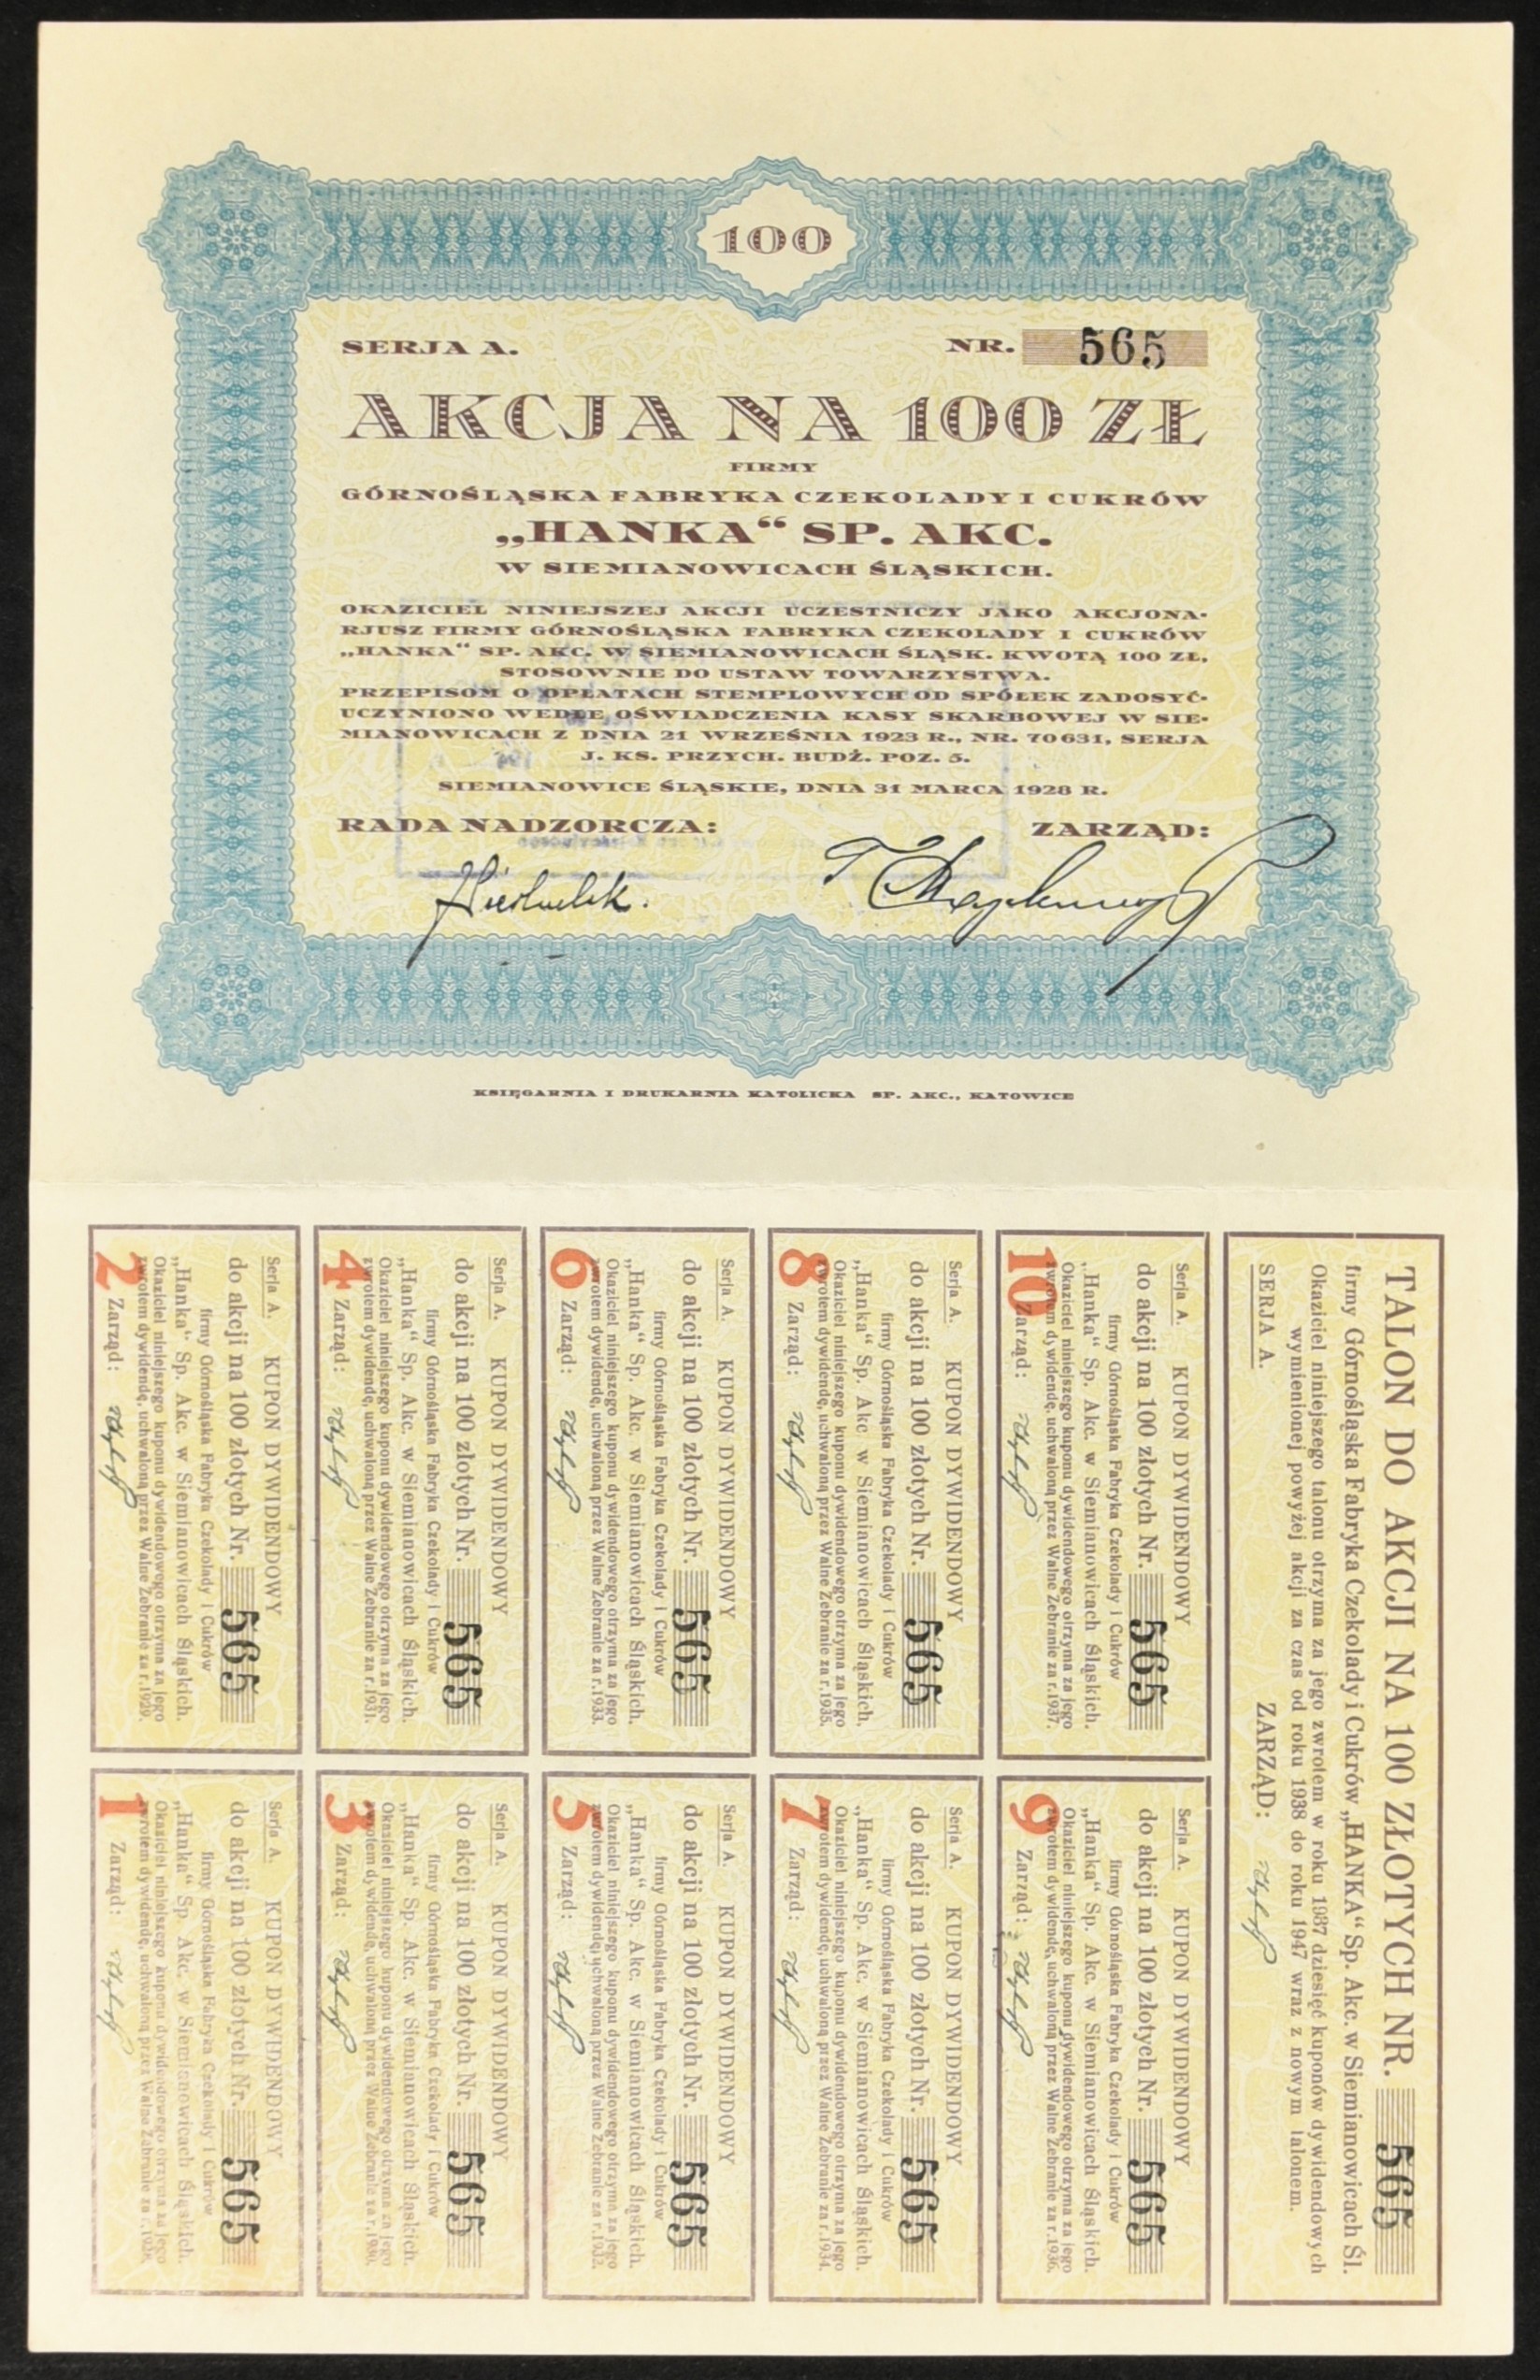 100
SERJA A.
NR. 565
AKCJA NA 100 ZŁ
FIRMY
GÓRNOŚLĄSKA FABRYKA CZEKOLADY I CUKRÓW
„HANKA“ SP. AKC.
W SIEMIANOWICACH ŚLĄSKICH.
OKAZICIEL NINIEJSZEJ AKCJI UCZESTNICZY JAKO AKCJONA-
RJUSZ FIRMY GÓRNOŚLĄSKA FABRYKA CZEKOLADY I CUKRÓW
„HANKA“ SP. AKC. W SIEMIANOWICACH ŚLĄSK. KWOTĄ 100 ZŁ,
STOSOWNIE DO USTAW TOWARZYSTWA.
PRZEPISOM O OPŁATACH STEMPLOWYCH OD SPÓŁEK ZADOSYĆ-
UCZYNIONO WEDLE OŚWIADCZENIA KASY SKARBOWEJ W SIE-
MIANOWICACH Z DNIA 21 WRZEŚNIA 1923 R., NR. 70631, SERJA
J. KS. PRZYCH. BUDŻ. POZ. 5.
SIEMIANOWICE ŚLĄSKIE, DNIA 31 MARCA 1928 R.
RADA NADZORCZA:
ZARZĄD:
KSIĘGARNIA I DRUKARNIA KATOLICKA SP. AKC., KATOWICE
TALON DO AKCJI NA 100 ZŁOTYCH NR. 565
firmy Górnośląska Fabryka Czekolady i Cukrów „HANKA“ Sp. Akc. w Siemianowicach Śl.
Okaziciel niniejszego talonu otrzyma za jego zwrotem w roku 1937 dziesięć kuponów dywidendowych
wymienionej powyżej akcji za czas od roku 1938 do roku 1947 wraz z nowym talonem.
SERJA A.
ZARZĄD:
Serja A. KUPON DYWIDENDOWY
do akcji na 100 złotych Nr. 565
firmy Górnośląska Fabryka Czekolady i Cukrów
„Hanka“ Sp. Akc. w Siemianowicach Śląskich.
Okaziciel niniejszego kuponu dywidendowego otrzyma za jego
zwrotem dywidendę, uchwaloną przez Walne Zebranie za r. 1937.
10 Zarząd:
Serja A. KUPON DYWIDENDOWY
do akcji na 100 złotych Nr. 565
firmy Górnośląska Fabryka Czekolady i Cukrów
„Hanka“ Sp. Akc. w Siemianowicach Śląskich.
Okaziciel niniejszego kuponu dywidendowego otrzyma za jego
zwrotem dywidendę, uchwaloną przez Walne Zebranie za r. 1936.
9 Zarząd:
Serja A. KUPON DYWIDENDOWY
do akcji na 100 złotych Nr. 565
firmy Górnośląska Fabryka Czekolady i Cukrów
„Hanka“ Sp. Akc. w Siemianowicach Śląskich.
Okaziciel niniejszego kuponu dywidendowego otrzyma za jego
zwrotem dywidendę, uchwaloną przez Walne Zebranie za r. 1935.
8 Zarząd:
Serja A. KUPON DYWIDENDOWY
do akcji na 100 złotych Nr. 565
firmy Górnośląska Fabryka Czekolady i Cukrów
„Hanka“ Sp. Akc. w Siemianowicach Śląskich.
Okaziciel niniejszego kuponu dywidendowego otrzyma za jego
zwrotem dywidendę, uchwaloną przez Walne Zebranie za r. 1934.
7 Zarząd:
Serja A. KUPON DYWIDENDOWY
do akcji na 100 złotych Nr. 565
firmy Górnośląska Fabryka Czekolady i Cukrów
„Hanka“ Sp. Akc. w Siemianowicach Śląskich.
Okaziciel niniejszego kuponu dywidendowego otrzyma za jego
zwrotem dywidendę, uchwaloną przez Walne Zebranie za r. 1933.
6 Zarząd:
Serja A. KUPON DYWIDENDOWY
do akcji na 100 złotych Nr. 565
firmy Górnośląska Fabryka Czekolady i Cukrów
„Hanka“ Sp. Akc. w Siemianowicach Śląskich.
Okaziciel niniejszego kuponu dywidendowego otrzyma za jego
zwrotem dywidendę, uchwaloną przez Walne Zebranie za r. 1932.
5 Zarząd:
Serja A. KUPON DYWIDENDOWY
do akcji na 100 złotych Nr. 565
firmy Górnośląska Fabryka Czekolady i Cukrów
„Hanka“ Sp. Akc. w Siemianowicach Śląskich.
Okaziciel niniejszego kuponu dywidendowego otrzyma za jego
zwrotem dywidendę, uchwaloną przez Walne Zebranie za r. 1931.
4 Zarząd:
Serja A. KUPON DYWIDENDOWY
do akcji na 100 złotych Nr. 565
firmy Górnośląska Fabryka Czekolady i Cukrów
„Hanka“ Sp. Akc. w Siemianowicach Śląskich.
Okaziciel niniejszego kuponu dywidendowego otrzyma za jego
zwrotem dywidendę, uchwaloną przez Walne Zebranie za r. 1930.
3 Zarząd:
Serja A. KUPON DYWIDENDOWY
do akcji na 100 złotych Nr. 565
firmy Górnośląska Fabryka Czekolady i Cukrów
„Hanka“ Sp. Akc. w Siemianowicach Śląskich.
Okaziciel niniejszego kuponu dywidendowego otrzyma za jego
zwrotem dywidendę, uchwaloną przez Walne Zebranie za r. 1929.
2 Zarząd:
Serja A. KUPON DYWIDENDOWY
do akcji na 100 złotych Nr. 565
firmy Górnośląska Fabryka Czekolady i Cukrów
„Hanka“ Sp. Akc. w Siemianowicach Śląskich.
Okaziciel niniejszego kuponu dywidendowego otrzyma za jego
zwrotem dywidendę, uchwaloną przez Walne Zebranie za r. 1928.
1 Zarząd: